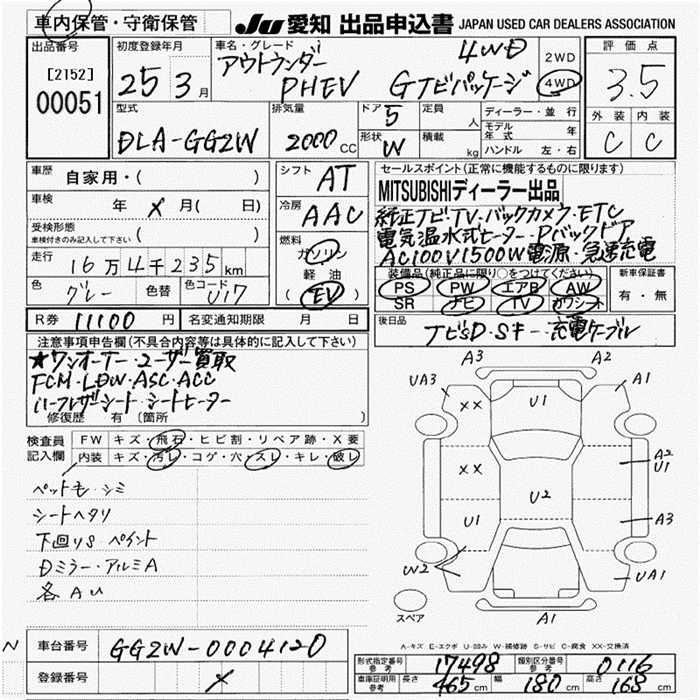 車内保管・守衛保管
JU 愛知 出品申込書 JAPAN USED CAR DEALERS ASSOCIATION
出品番号
[2152]
00051
初度登録年月
25 3月
車名・グレード
アウトランダー
PHEV
4WD
Gナビパッケージ
2WD
4WD
評価点
3.5
外装 内装
C C
型式
DLA-GG2W
排気量
2000 CC
ドア 5
形状 W
定員 人
積載 kg
ディーラー・並行
モデル年式 年
ハンドル 左・右
車歴 自家用・( )
車検 年 × 月( 日)
受検形態
車検付きのみ記入して下さい ( )
走行 16万4千235km
色 グレー 色替 色コード U17
シフト AT
冷房 AAC
燃料
ガソリン
軽油
(EV)
セールスポイント(正常に機能するものに限ります)
MITSUBISHIディーラー出品
純正ナビ・TV・バックカメラ・ETC
電気温水式ヒーター・Pバックドア
AC100V1500W電源・急速充電
装備品(純正品に限り○をつけてください)
PS PW エアB AW
SR ナビ TV カワシート
新車保証書
有・無
R券 11100 円
名変通知期限 月 日
後日品
ナビSD・Sキー・充電ケーブル
注意事項申告欄(不具合内容等は具体的に記入して下さい)
★ワンオーナー・ユーザー買取
FCM・LDW・ASC・ACC
ハーフレザーシート・シートヒーター
修復歴 有 (箇所
検査員記入欄
FW キズ・飛石・ヒビ割・リペア跡・X要
内装 キズ・汚レ・コゲ・穴・スレ・キレ・破レ
ペット毛・シミ
シートヘタリ
下回りS ペイント
Dミラー・アルミA
各AU
A3 A2
UA3 A1
XX U1
XX U2
A2
U1
U1 A3
W2 UA1
A1
スペア
A-キズ E-エクボ U-凹み W-補修跡 S-サビ C-腐食 XX-交換済
N
車台番号 GG2W-0004120
登録番号 ×
形式指定番号 参考 17498
類別区分番号 参考 0116
車庫証明用 参考 長さ 465cm 幅 180cm 高さ 168cm